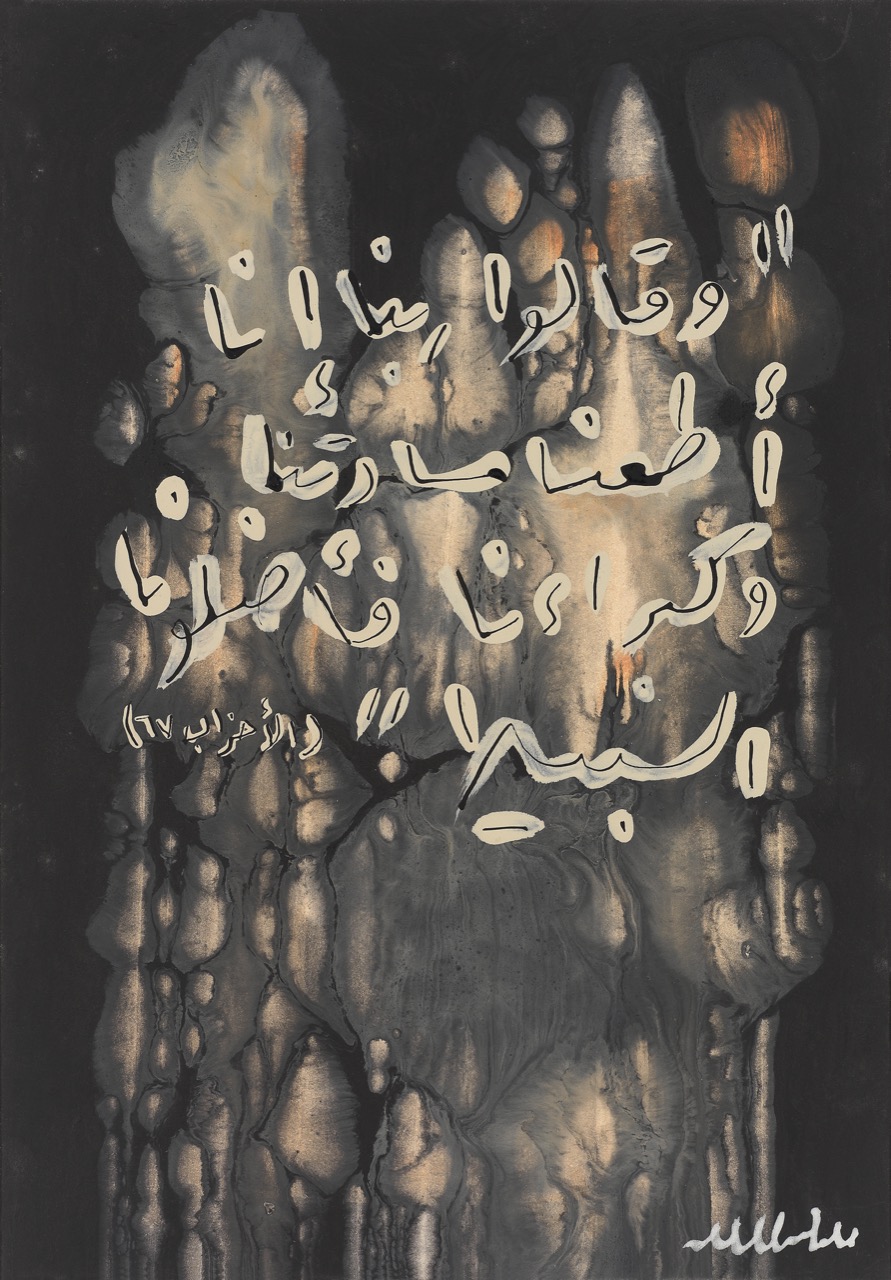 "وقالوا ربنا إنا
أطعنا سادتنا
وكبراءنا فأضلونا
السبيلا" (الأحزاب ٦٧)